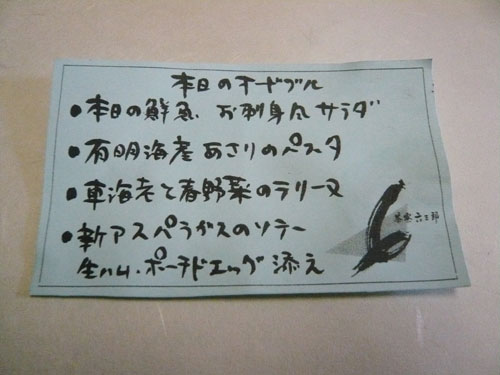 本日のオードブル
●本日の鮮魚 お刺身風サラダ
●有明海産あさりのパスタ
●車海老と春野菜のテリーヌ
●新アスパラガスのソテー
生ハム・ポーチドエッグ添え
六三郎